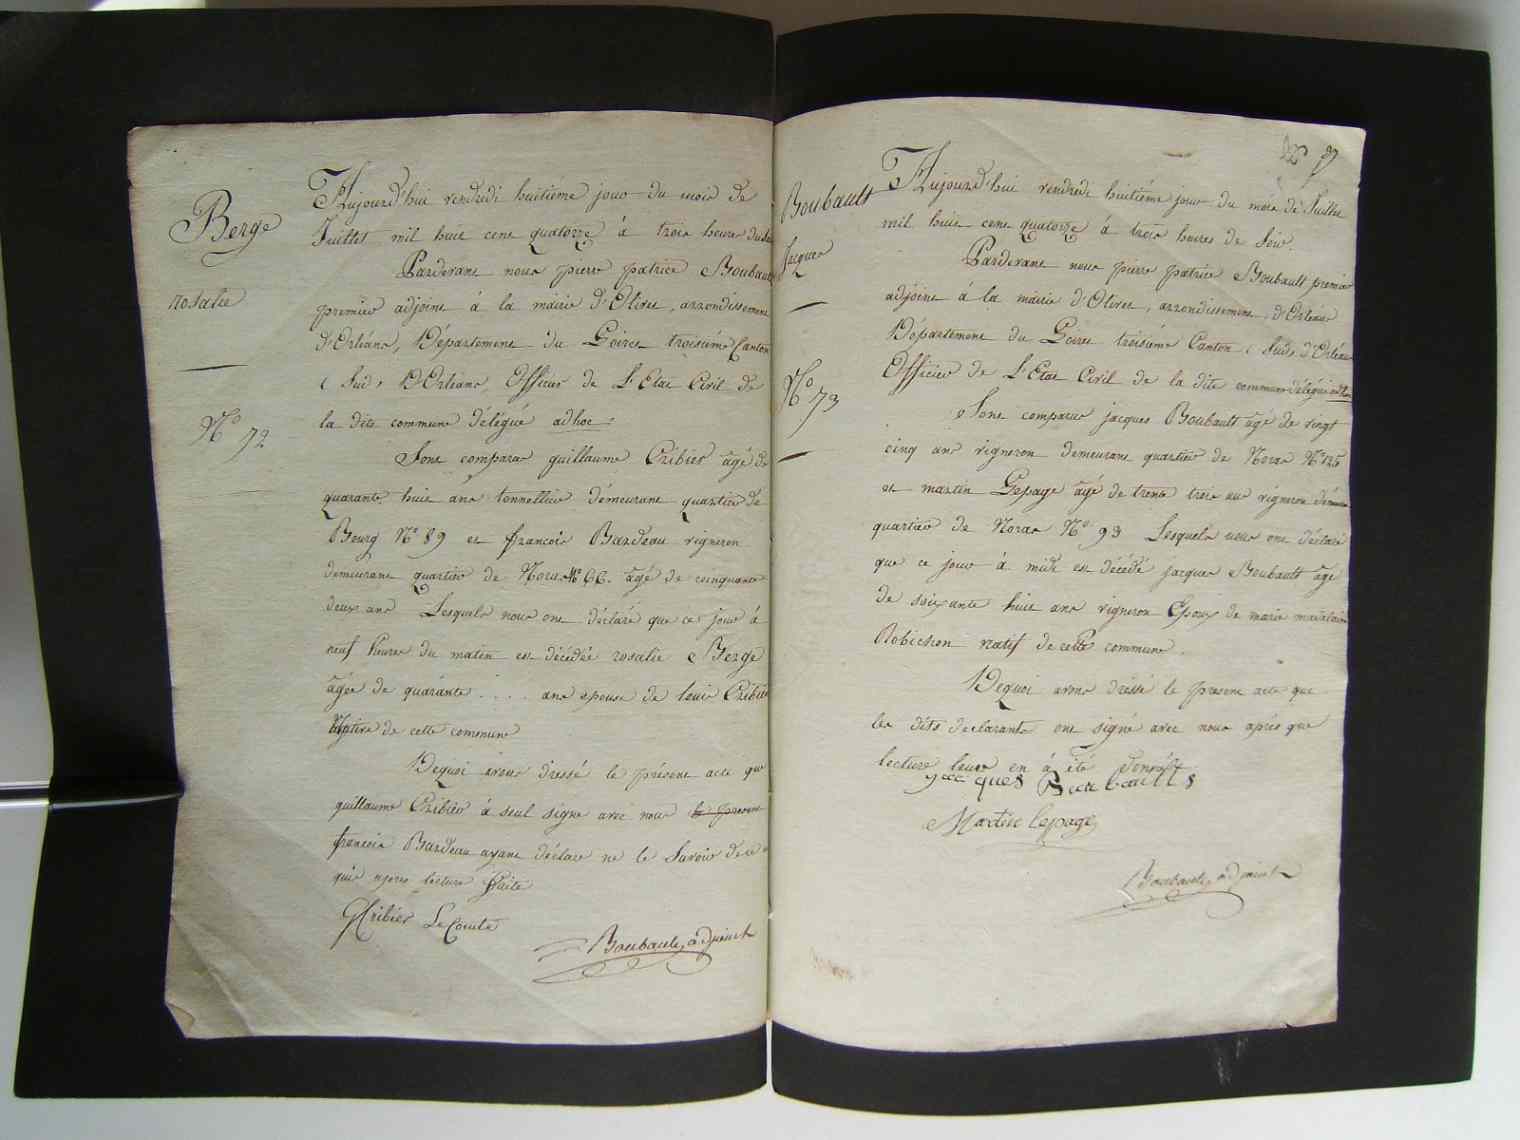 Berge
rosalie
N° 72
Aujourd'hui vendredi huitiéme jour du mois de
Juillet mil huit cent quatorze à trois heures du
Pardevant nous pierre patrice Boubault
premier adjoint à la mairie d'Olivet, arrondissement
d'Orléans, Département du Loiret troisiéme Canton
( Sud, D'Orléans, Officier de L'Etat Civil de
la dite commune délégué adhoc.
Sont comparus guillaume Cribier âgé de
quarante huit ans tonnellier démeurant quartier de
Bourg N° 89 et francois Bardeau vigneron
demeurant quartier de Noras N° 66. âgé de cinquante
deux ans Lesquels nous ont déclaré que ce jour à
neuf heures du matin est décédée rosalie Berge
âgée de quarante . . . . ans epouse de louis Cribier
Native de cette commune
Dequoi avons dressé le présent acte que
guillaume Cribier à seul signé avec nous le present
francois Bardeau ayant déclaré ne le Savoir de ce
qui apres lecture faite
GCribier LeComte
Boubault, adjoint
Boubault
Jacques
N° 73
Aujourd'hui vendredi huitiéme jour du mois de Juillet
mil huit cent quatorze à trois heures de Soir.
Pardevant nous pierre patrice Boubault premier
adjoint à la mairie d'Olivet, arrondissement, d'Orléans
Département du Loiret troisiéme Canton ( Sud, d'Orléans
Officier de L'Etat Civil de la dite commune délégué adhoc
Sont comparus jacques Boubault âgé de vingt
cinq ans vigneron demeurant quartier de Noras N° 125
et martin Lepage âgé de trente trois ans vigneron
quartier de Noras N° 93 Lesquels nous ont déclaré
que ce jour à midi est décédé jacques Boubault âgé
de soixante huit ans vigneron Epoux de marie
Robichon natif de cette commune.
Dequoi avons dressé le present acte que
les dits declarants ont signé avec nous après que
lecture leur en à été
jacques Boubault
Martin lepage
Boubault, adjoint